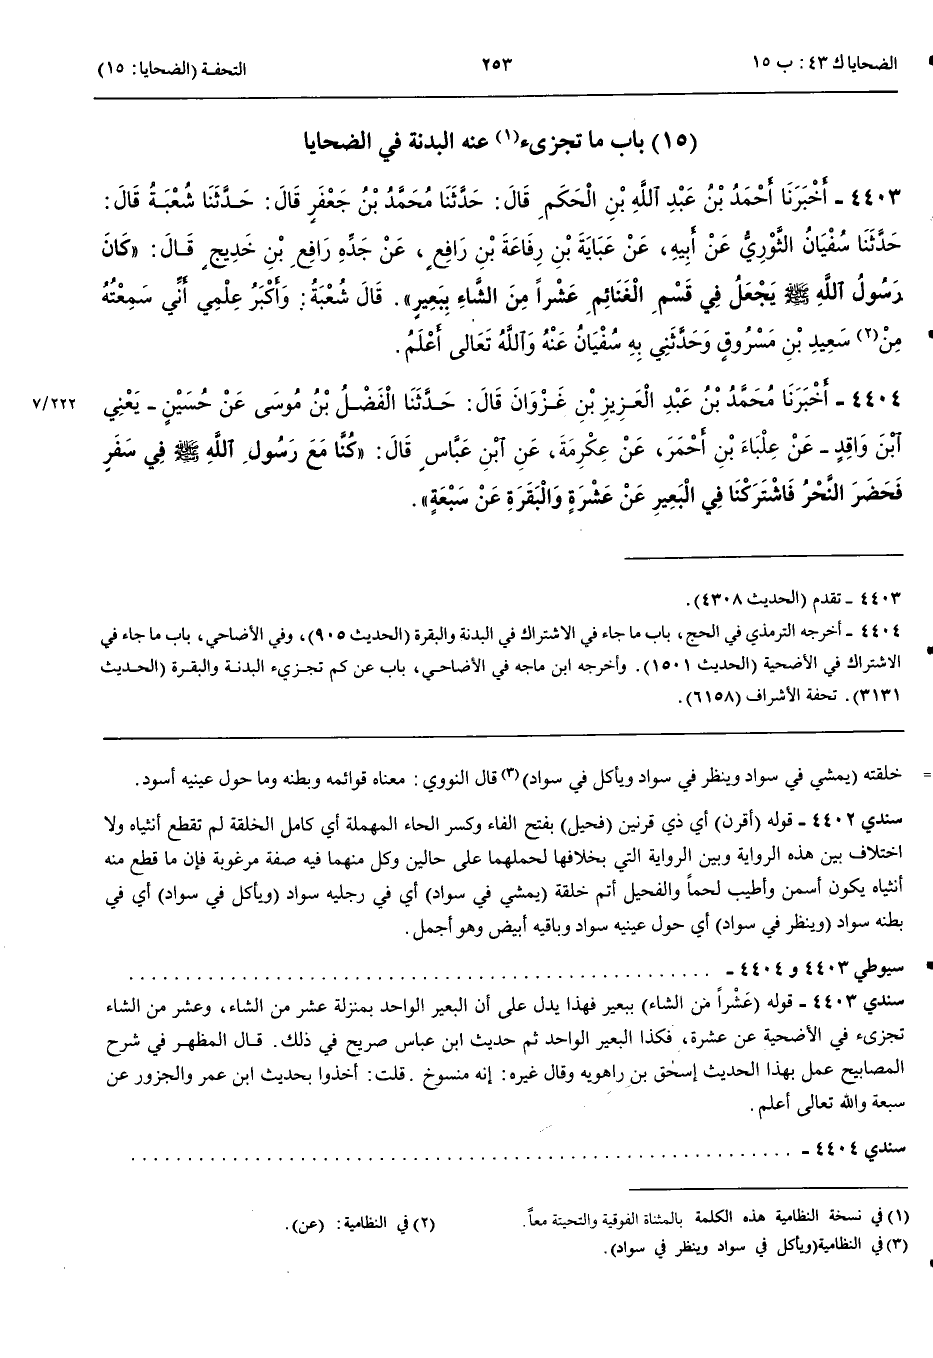 الضحايا ك ٤٣: ب ١٥
٢٥٣
التحفة (الضحايا: ١٥)
(١٥) باب ما تجزىء(١) عنه البدنة في الضحايا
٤٤٠٣ ـ أَخْبَرَنَا أَحْمَدُ بْنُ عَبْدِ ٱللَّهِ بْنِ الْحَكَمِ قَالَ: حَدَّثَنَا مُحَمَّدُ بْنُ جَعْفَرٍ قَالَ: حَدَّثَنَا شُعْبَةُ قَالَ:
حَدَّثَنَا سُفْيَانُ الثَّوْرِيُّ عَنْ أَبِيهِ، عَنْ عَبَايَةَ بْنِ رِفَاعَةَ بْنِ رَافِعٍ، عَنْ جَدِّهِ رَافِعِ بْنِ خَدِيجٍ قَالَ: «كَانَ
رَسُولُ ٱللَّهِ ﷺ يَجْعَلُ فِي قَسْمِ الْغَنَائِمِ عَشْراً مِنَ الشَّاءِ بِبَعِيرٍ». قَالَ شُعْبَةُ: وَأَكْبَرُ عِلْمِي أَنِّي سَمِعْتُهُ
مِنْ(٢) سَعِيدِ بْنِ مَسْرُوقٍ وَحَدَّثَنِي بِهِ سُفْيَانُ عَنْهُ وَاللَّهُ تَعَالى أَعْلَمُ.
٤٤٠٤ ـ أَخْبَرَنَا مُحَمَّدُ بْنُ عَبْدِ الْعَزِيزِ بْنِ غَزْوَانَ قَالَ: حَدَّثَنَا الْفَضْلُ بْنُ مُوسَى عَنْ حُسَيْنٍ ـ يَعْنِي ٧/٢٢٢
ٱبْنَ وَاقِدٍ ـ عَنْ عِلْبَاءَ بْنِ أَحْمَرَ، عَنْ عِكْرِمَةَ، عَنِ ٱبْنِ عَبَّاسٍ قَالَ: «كُنَّا مَعَ رَسُولِ ٱللَّهِ ﷺ فِي سَفَرٍ
فَحَضَرَ النَّحْرُ فَاشْتَرَكْنَا فِي الْبَعِيرِ عَنْ عَشْرَةٍ وَالْبَقَرَةِ عَنْ سَبْعَةٍ».
٤٤٠٣ ـ تقدم (الحديث ٤٣٠٨).
٤٤٠٤ ـ أخرجه الترمذي في الحج، باب ما جاء في الاشتراك في البدنة والبقرة (الحديث ٩٠٥)، وفي الأضاحي، باب ما جاء في
الاشتراك في الأضحية (الحديث ١٥٠١). وأخرجه ابن ماجه في الأضاحي، باب عن كم تجزىء البدنة والبقرة (الحديث
٣١٣١). تحفة الأشراف (٦١٥٨).
= خلقته (يمشي في سواد وينظر في سواد ويأكل في سواد)(٣) قال النووي: معناه قوائمه وبطنه وما حول عينيه أسود.
سندي ٤٤٠٢ ـ قوله (أقرن) أي ذي قرنين (فحيل) بفتح الفاء وكسر الحاء المهملة أي كامل الخلقة لم تقطع أنثياه ولا
اختلاف بين هذه الرواية وبين الرواية التي بخلافها لحملهما على حالين وكل منهما فيه صفة مرغوبة فإن ما قطع منه
أنثياه يكون أسمن وأطيب لحماً والفحيل أتم خلقة (يمشي في سواد) أي في رجليه سواد (ويأكل في سواد) أي في
بطنه سواد (وينظر في سواد) أي حول عينيه سواد وباقيه أبيض وهو أجمل.
سيوطي ٤٤٠٣ و ٤٤٠٤ ـ . . . . . . . . . . . . . . . . . . . . . . . . . . . . . .
سندي ٤٤٠٣ ـ قوله (عَشْراً من الشاء) ببعير فهذا يدل على أن البعير الواحد بمنزلة عشر من الشاء، وعشر من الشاء
تجزىء في الأضحية عن عشرة، فكذا البعير الواحد ثم حديث ابن عباس صريح في ذلك. قال المظهر في شرح
المصابيح عمل بهذا الحديث إسحٰق بن راهويه وقال غيره: إنه منسوخ. قلت: أخذوا بحديث ابن عمر والجزور عن
سبعة والله تعالى أعلم.
سندي ٤٤٠٤ ـ . . . . . . . . . . . . . . . . . . . . . . . . . . . . . .
(١) في نسخة النظامية هذه الكلمة بالمثناة الفوقية والتحيتة معاً. (٢) في النظامية: (عن).
(٣) في النظامية(ويأكل في سواد وينظر في سواد).